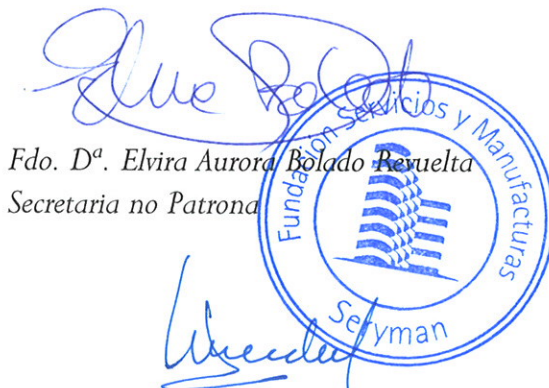 Fdo. Dª. Elvira Aurora Bolado Revuelta
Secretaria no Patrona
Fundación Servicios y Manufacturas
Seryman